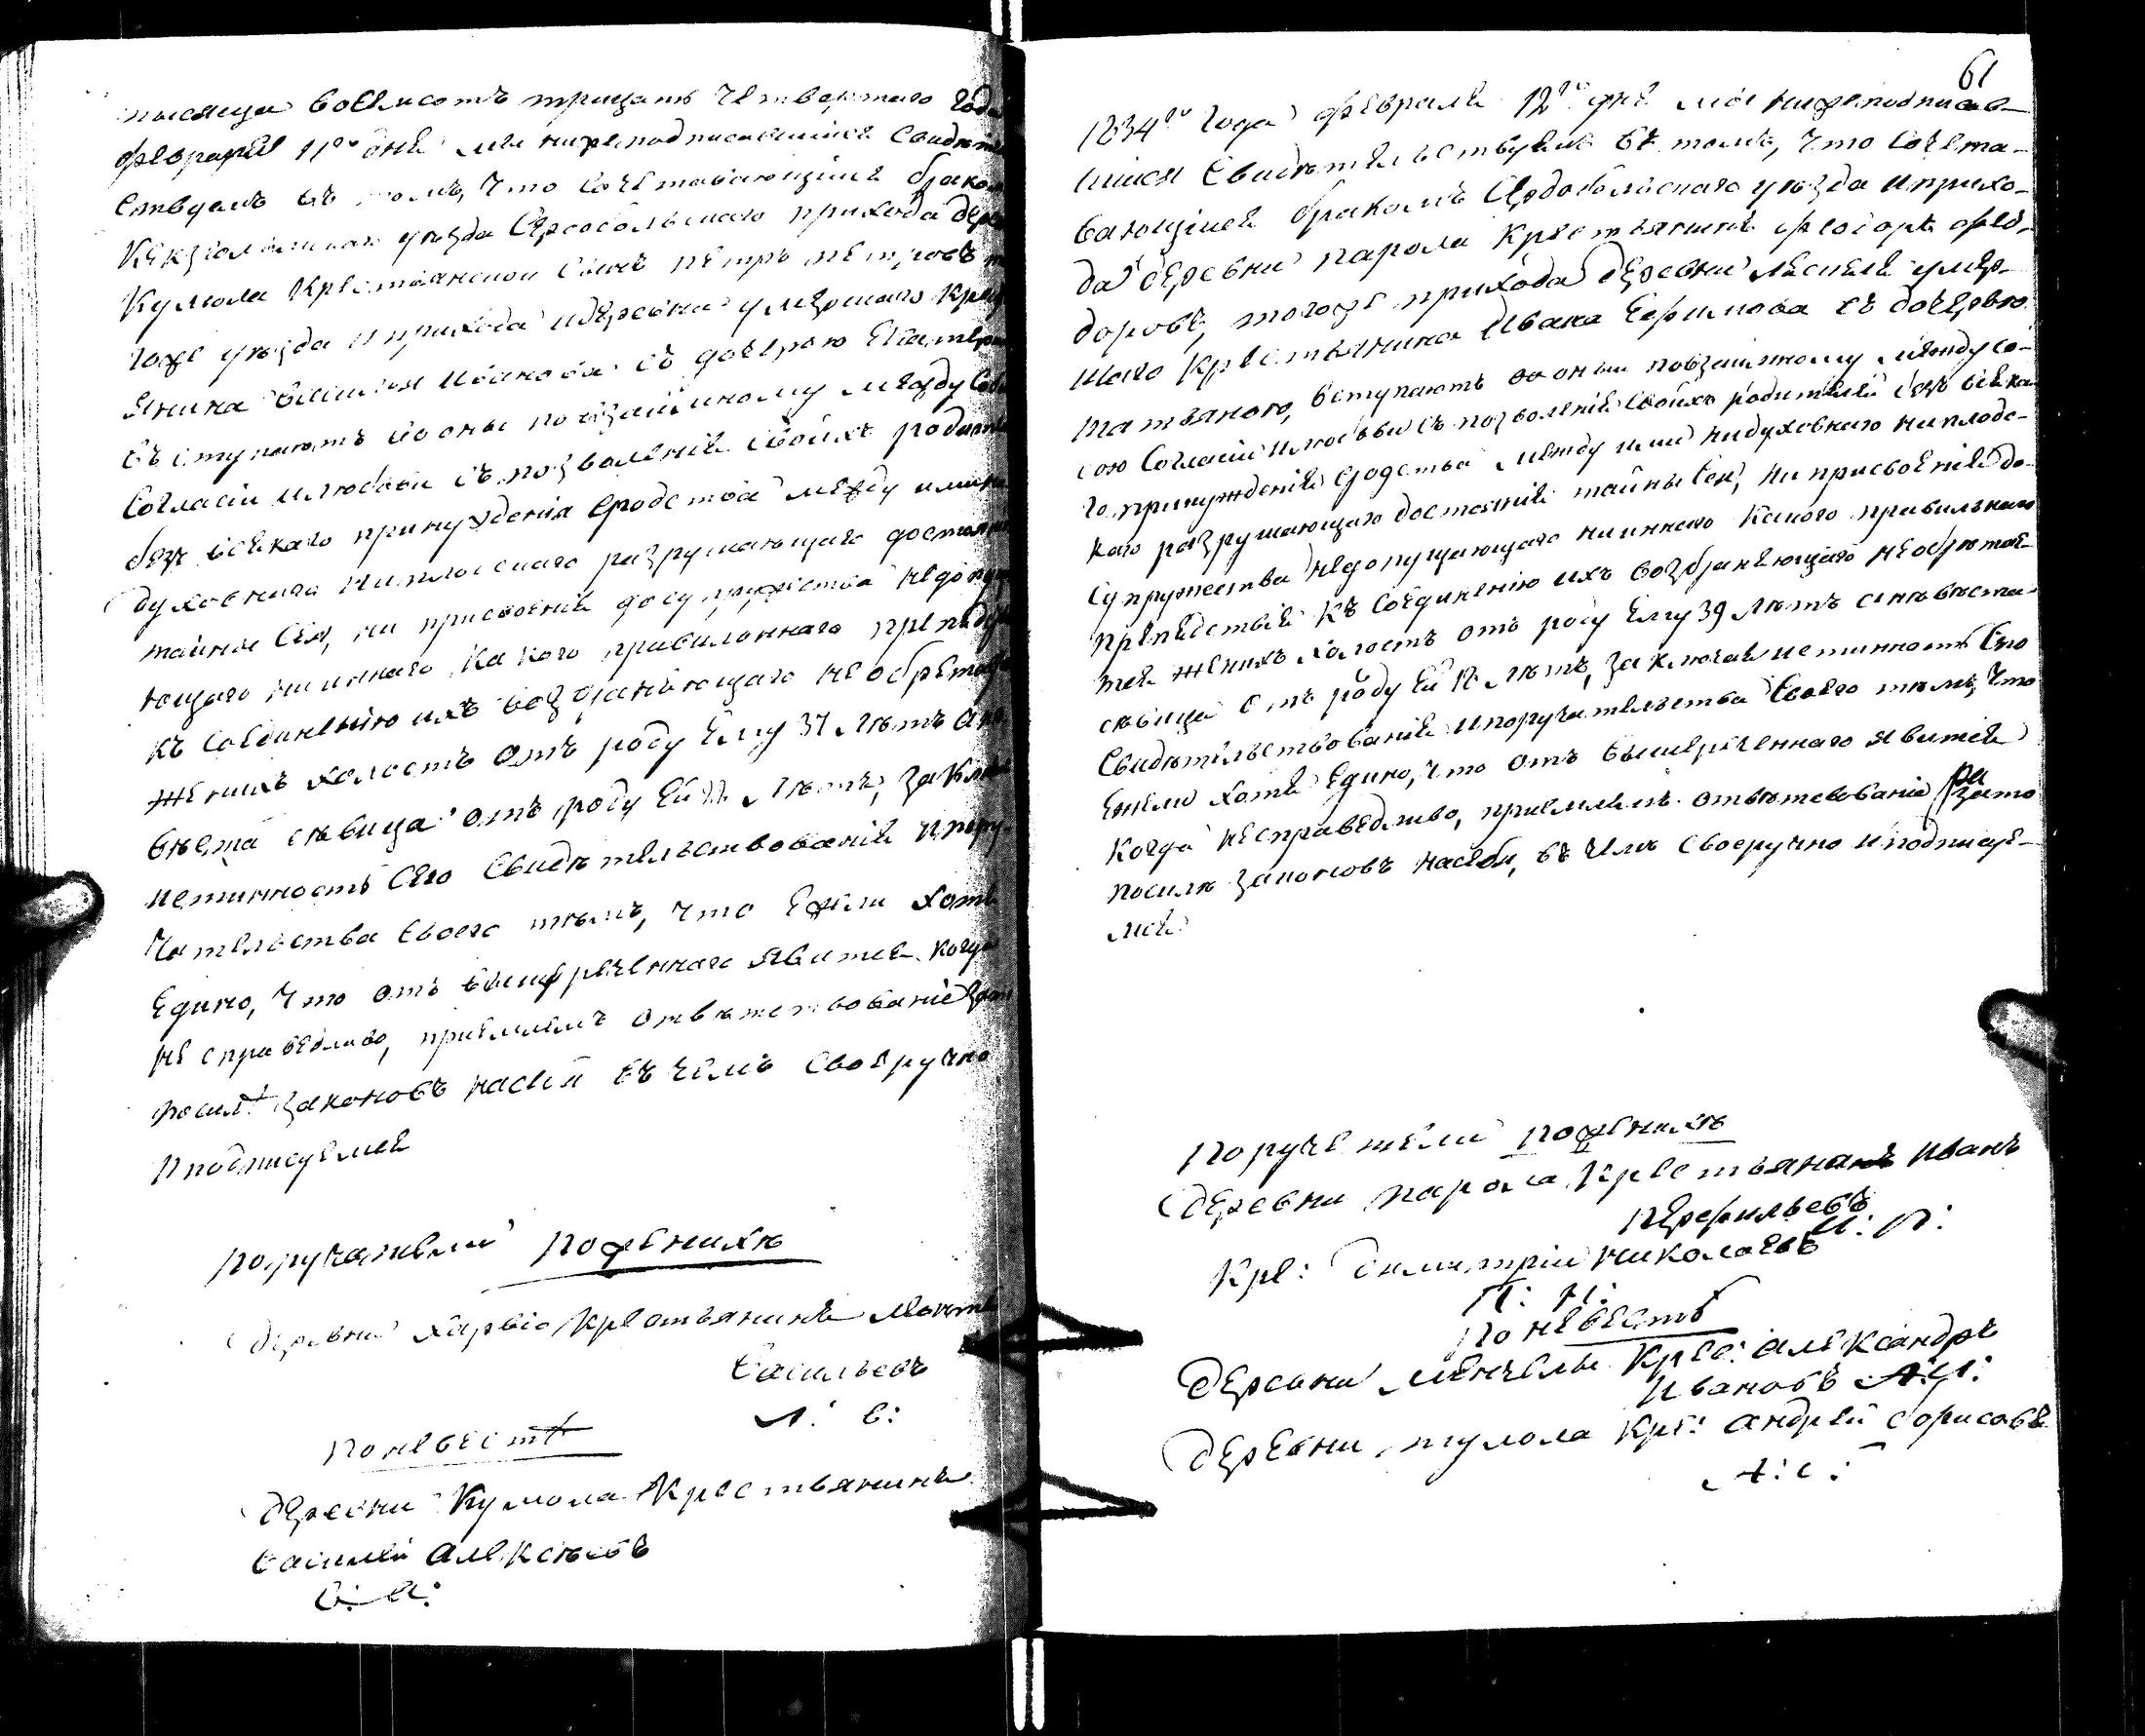 тысяща восемсотъ тридцать четвертаго года
февраля 11го дня мы нижеподписавшіися свидетель
ствуемъ въ томъ, что сочетавающіися бракомъ
Кексгольмскаго уезда Сердобольскаго прихода дерев
Кумола крестьянской сынъ Петръ Петровъ то
гоже уезда и прихода и деревни умершаго крест
янина Василья Иванова съ дочерью Екатерин
въступаютъ во оны по взаимному между собою
согласіи и любови съ позволенія своихъ родителей
безъ всякаго принужденія сродства между ими ни
духовнаго ни плотскаго разрушающаго достоянія
тайны сея, ни присвоенія до супружества недопу
ющаго ни иннаго какого правильннаго препядствія
къ соединенію ихъ возбраняющаго не обретается
женихъ холостъ отъ роду ему 31 летъ а не
веста девица отъ роду ей летъ, заключ
истинность сего свидетельствованія и пору
чательства своего темъ, что ежели хотя
едино, что отъ вышереченнаго явится когда
не справедливо, приемлемъ ответствованіе зато
посиле законовъ насебя въ чемъ своеручно
и подписуемся
поручатели по женихе
деревни Харвіо крестьянинъ
Васильевъ
Л: В:
по невесте
деревни Кумола Крестьянинъ
Василей Алексеевъ
В: А:
61
1834го года февраля 12го дня мы нижеподписав-
шіися свидетельствуемъ въ томъ, что сочета-
вающіися бракомъ Сердобольскаго уезда и прихо-
да деревни Парола крестьянинъ Феодоръ Фео-
доровъ, тогоже прихода деревни умер-
шаго крестьянина Ивана Ефимова съ дочерью
Татьяною, вступаютъ во оныи повзаимному между со-
бою согласіи и любови съ позволенія своихъ родителей безъ всяка-
го принужденія сродства между ими ни духовнаго ни плотс-
каго разрушающаго достоянія тайны сея, ни присвоенія до-
супружества недопущающаго ни иннаго какого правильнаго
препядствія къ соединенію ихъ возбраняющаго не обретае-
тся женихъ холостъ отъ роду ему 39 летъ а невеста
девица отъ роду ей летъ, заключая истинность сего
свидетельствованія и поручательства своего темъ, что
ежели хотя едино, что отъ вышереченнаго явится
когда несправедливо, приемлемъ ответсвованіе зато
посиле законовъ насебя, въ чемъ своеручно и подписуе-
мся
Поручетели поженихе
деревни Парола Крестьянинъ Иванъ
Перфильевъ
И: П:
Кре: Димитріи Николаевъ
Д: Н:
По невесте
деревни Крес: Александръ
Ивановъ А: И:
деревни Тулола Кре: Андрей Борисовъ